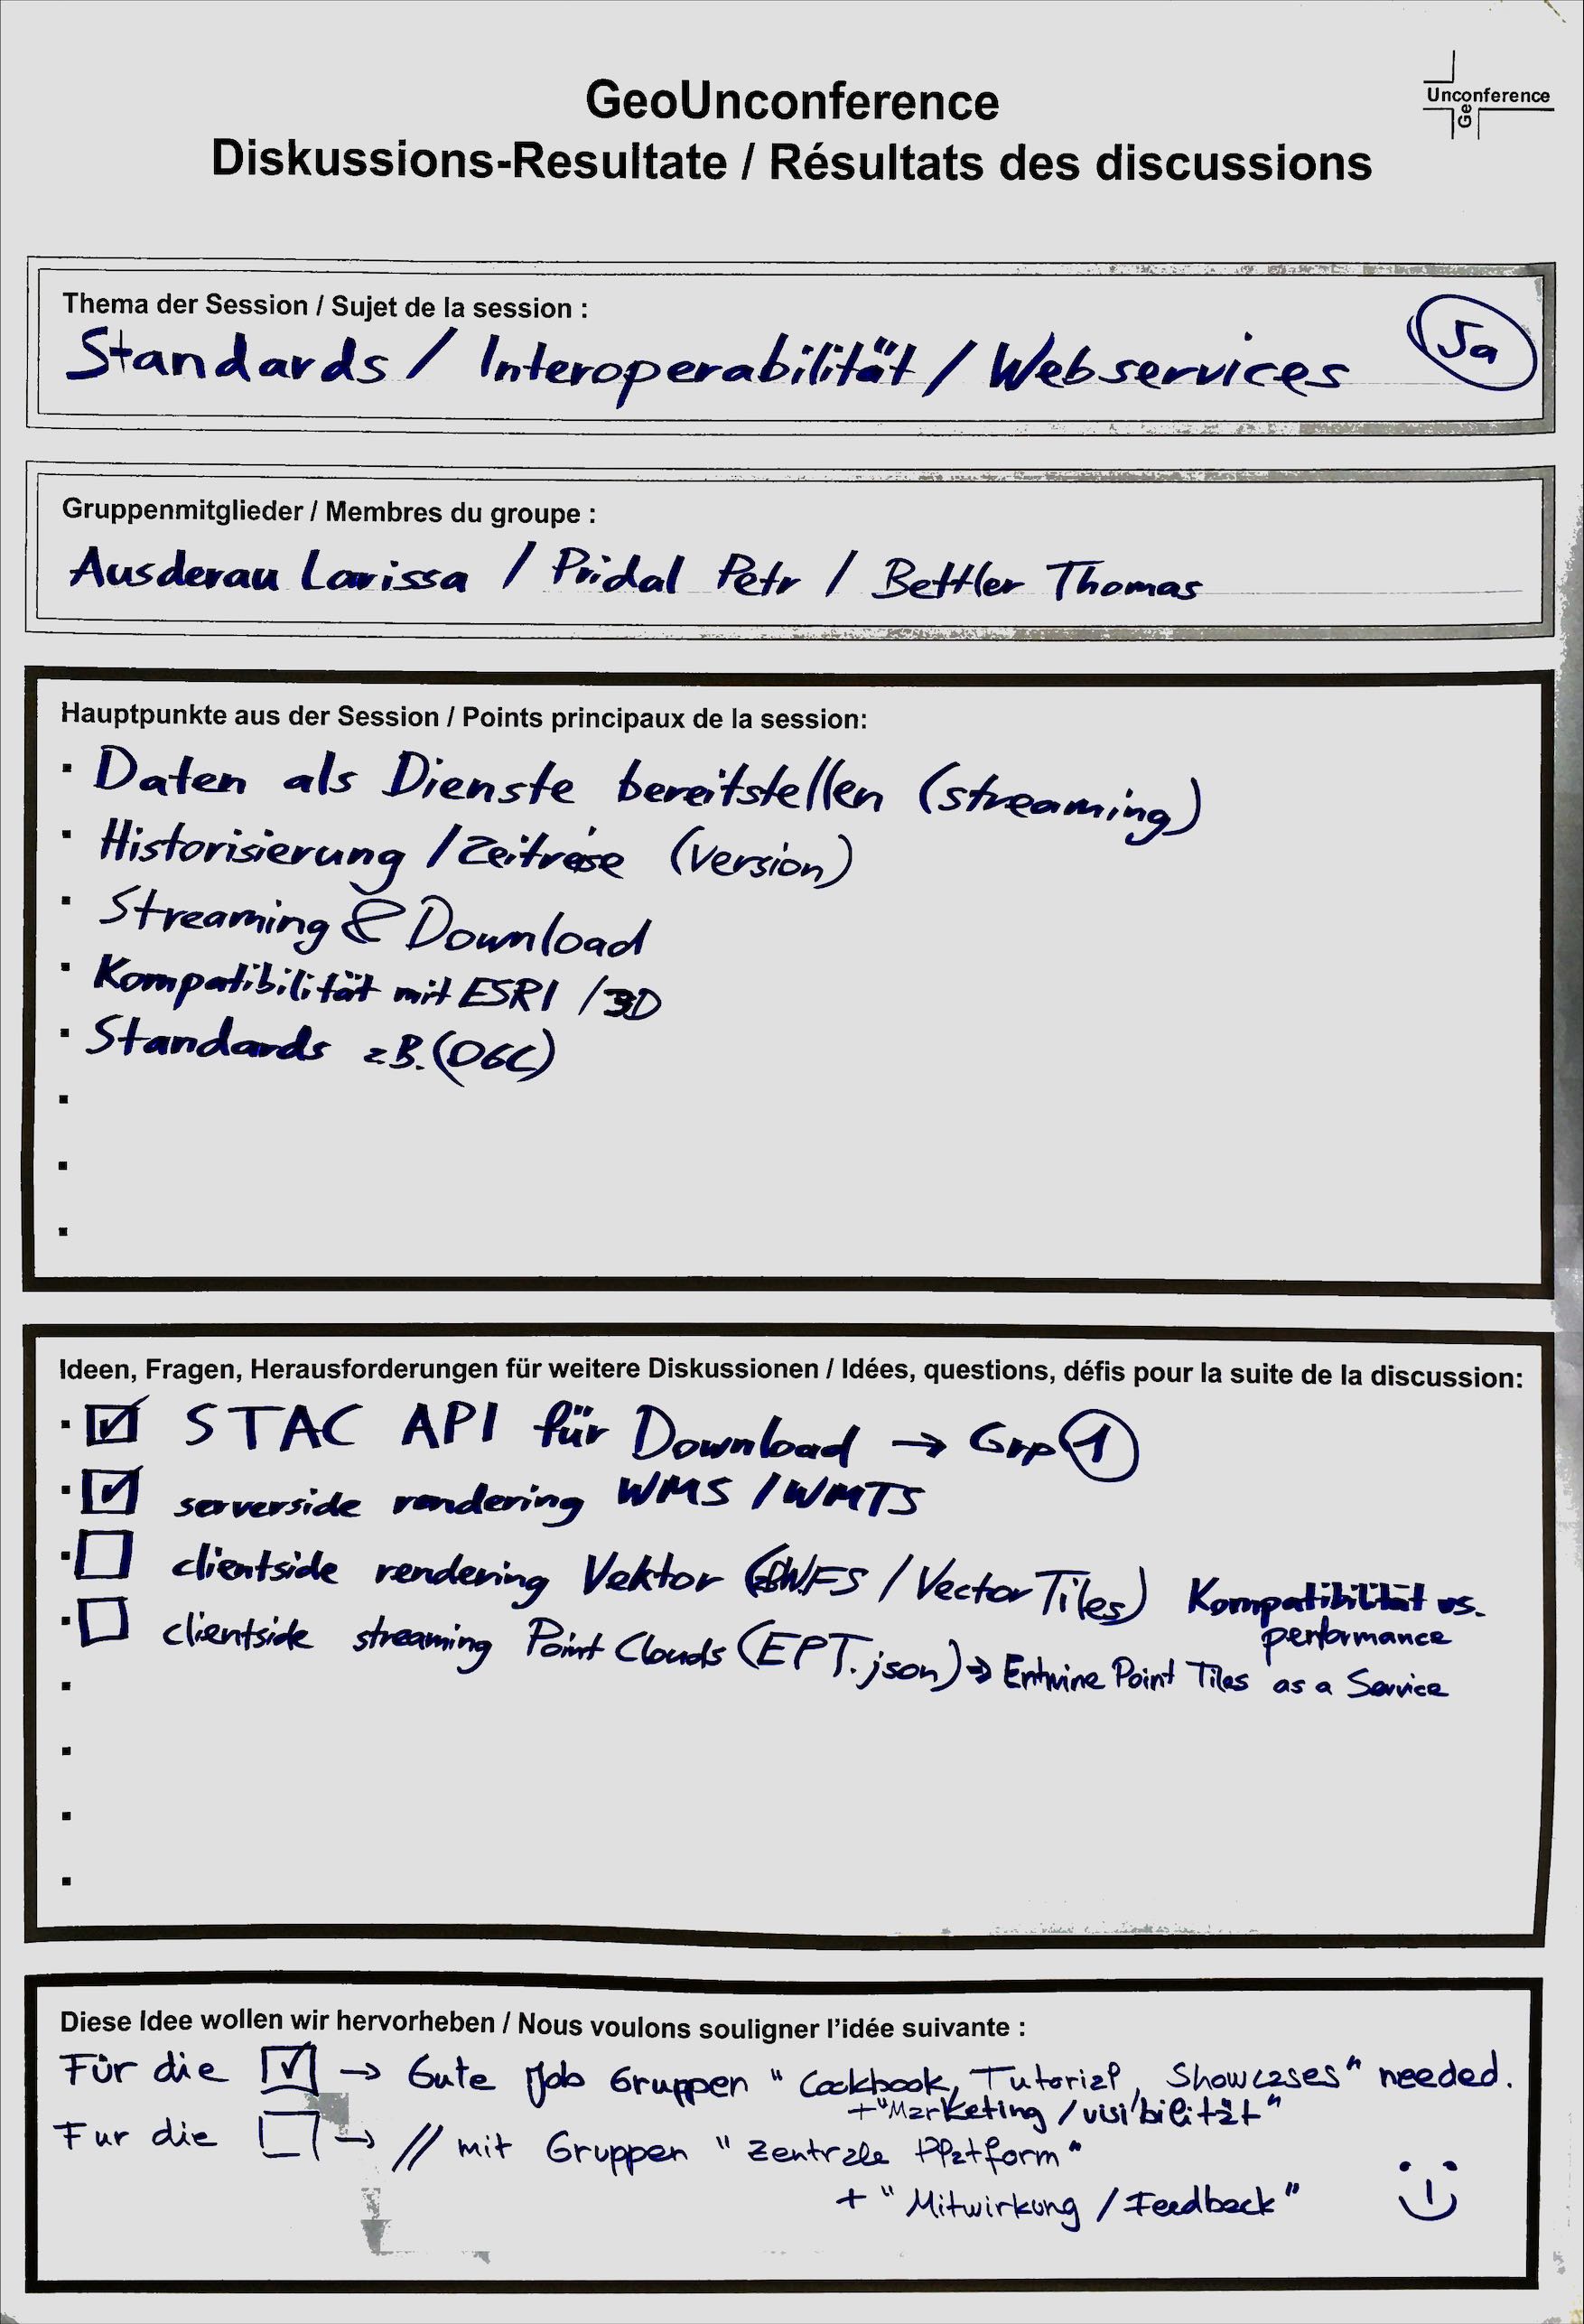 GeoUnconference
Unconference
Geo
Diskussions-Resultate / Résultats des discussions
Thema der Session / Sujet de la session :
Standards / Interoperabilität / Webservices
5a
Gruppenmitglieder / Membres du groupe :
Ausderau Larissa / Pridal Petr / Bettler Thomas
Hauptpunkte aus der Session / Points principaux de la session:
▪ Daten als Dienste bereitstellen (streaming)
▪ Historisierung / Zeitreise (Version)
▪ Streaming & Download
▪ Kompatibilität mit ESRI / 3D
▪ Standards z.B. (OGC)
▪
▪
▪
Ideen, Fragen, Herausforderungen für weitere Diskussionen / Idées, questions, défis pour la suite de la discussion:
▪ ☑ STAC API für Download → Grp 1
▪ ☑ serverside rendering WMS / WMTS
▪ ☐ clientside rendering Vektor (WFS / Vector Tiles) Kompatibilität vs.
performance
▪ ☐ clientside streaming Point Clouds (EPT.json) → Entwine Point Tiles as a Service
▪
▪
▪
▪
Diese Idee wollen wir hervorheben / Nous voulons souligner l'idée suivante :
Für die ☑ → Gute Job Gruppen "Cookbook, Tutorial, Showcases" needed.
+ "Marketing / visibilität"
Fur die ☐ → // mit Gruppen "Zentrale Platform"
+ "Mitwirkung / Feedback"